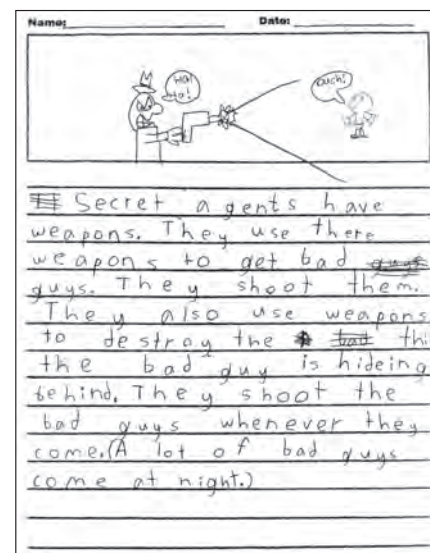 Name: Date:
Ha!
Ha!
Ouch!
Secret agents have
weapons. They use there
weapons to get bad
guys. They shoot them.
They also use weapons
to destroy the bad thi
the bad guy is hideing
behind. They shoot the
bad guys whenever they
come. (A lot of bad guys
come at night.)